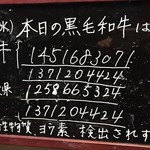 水) 本日の黒毛和牛は
牛 1451683071
1371204424
果 1258665324
1371204424
性物質、ヨウ素、検出されず